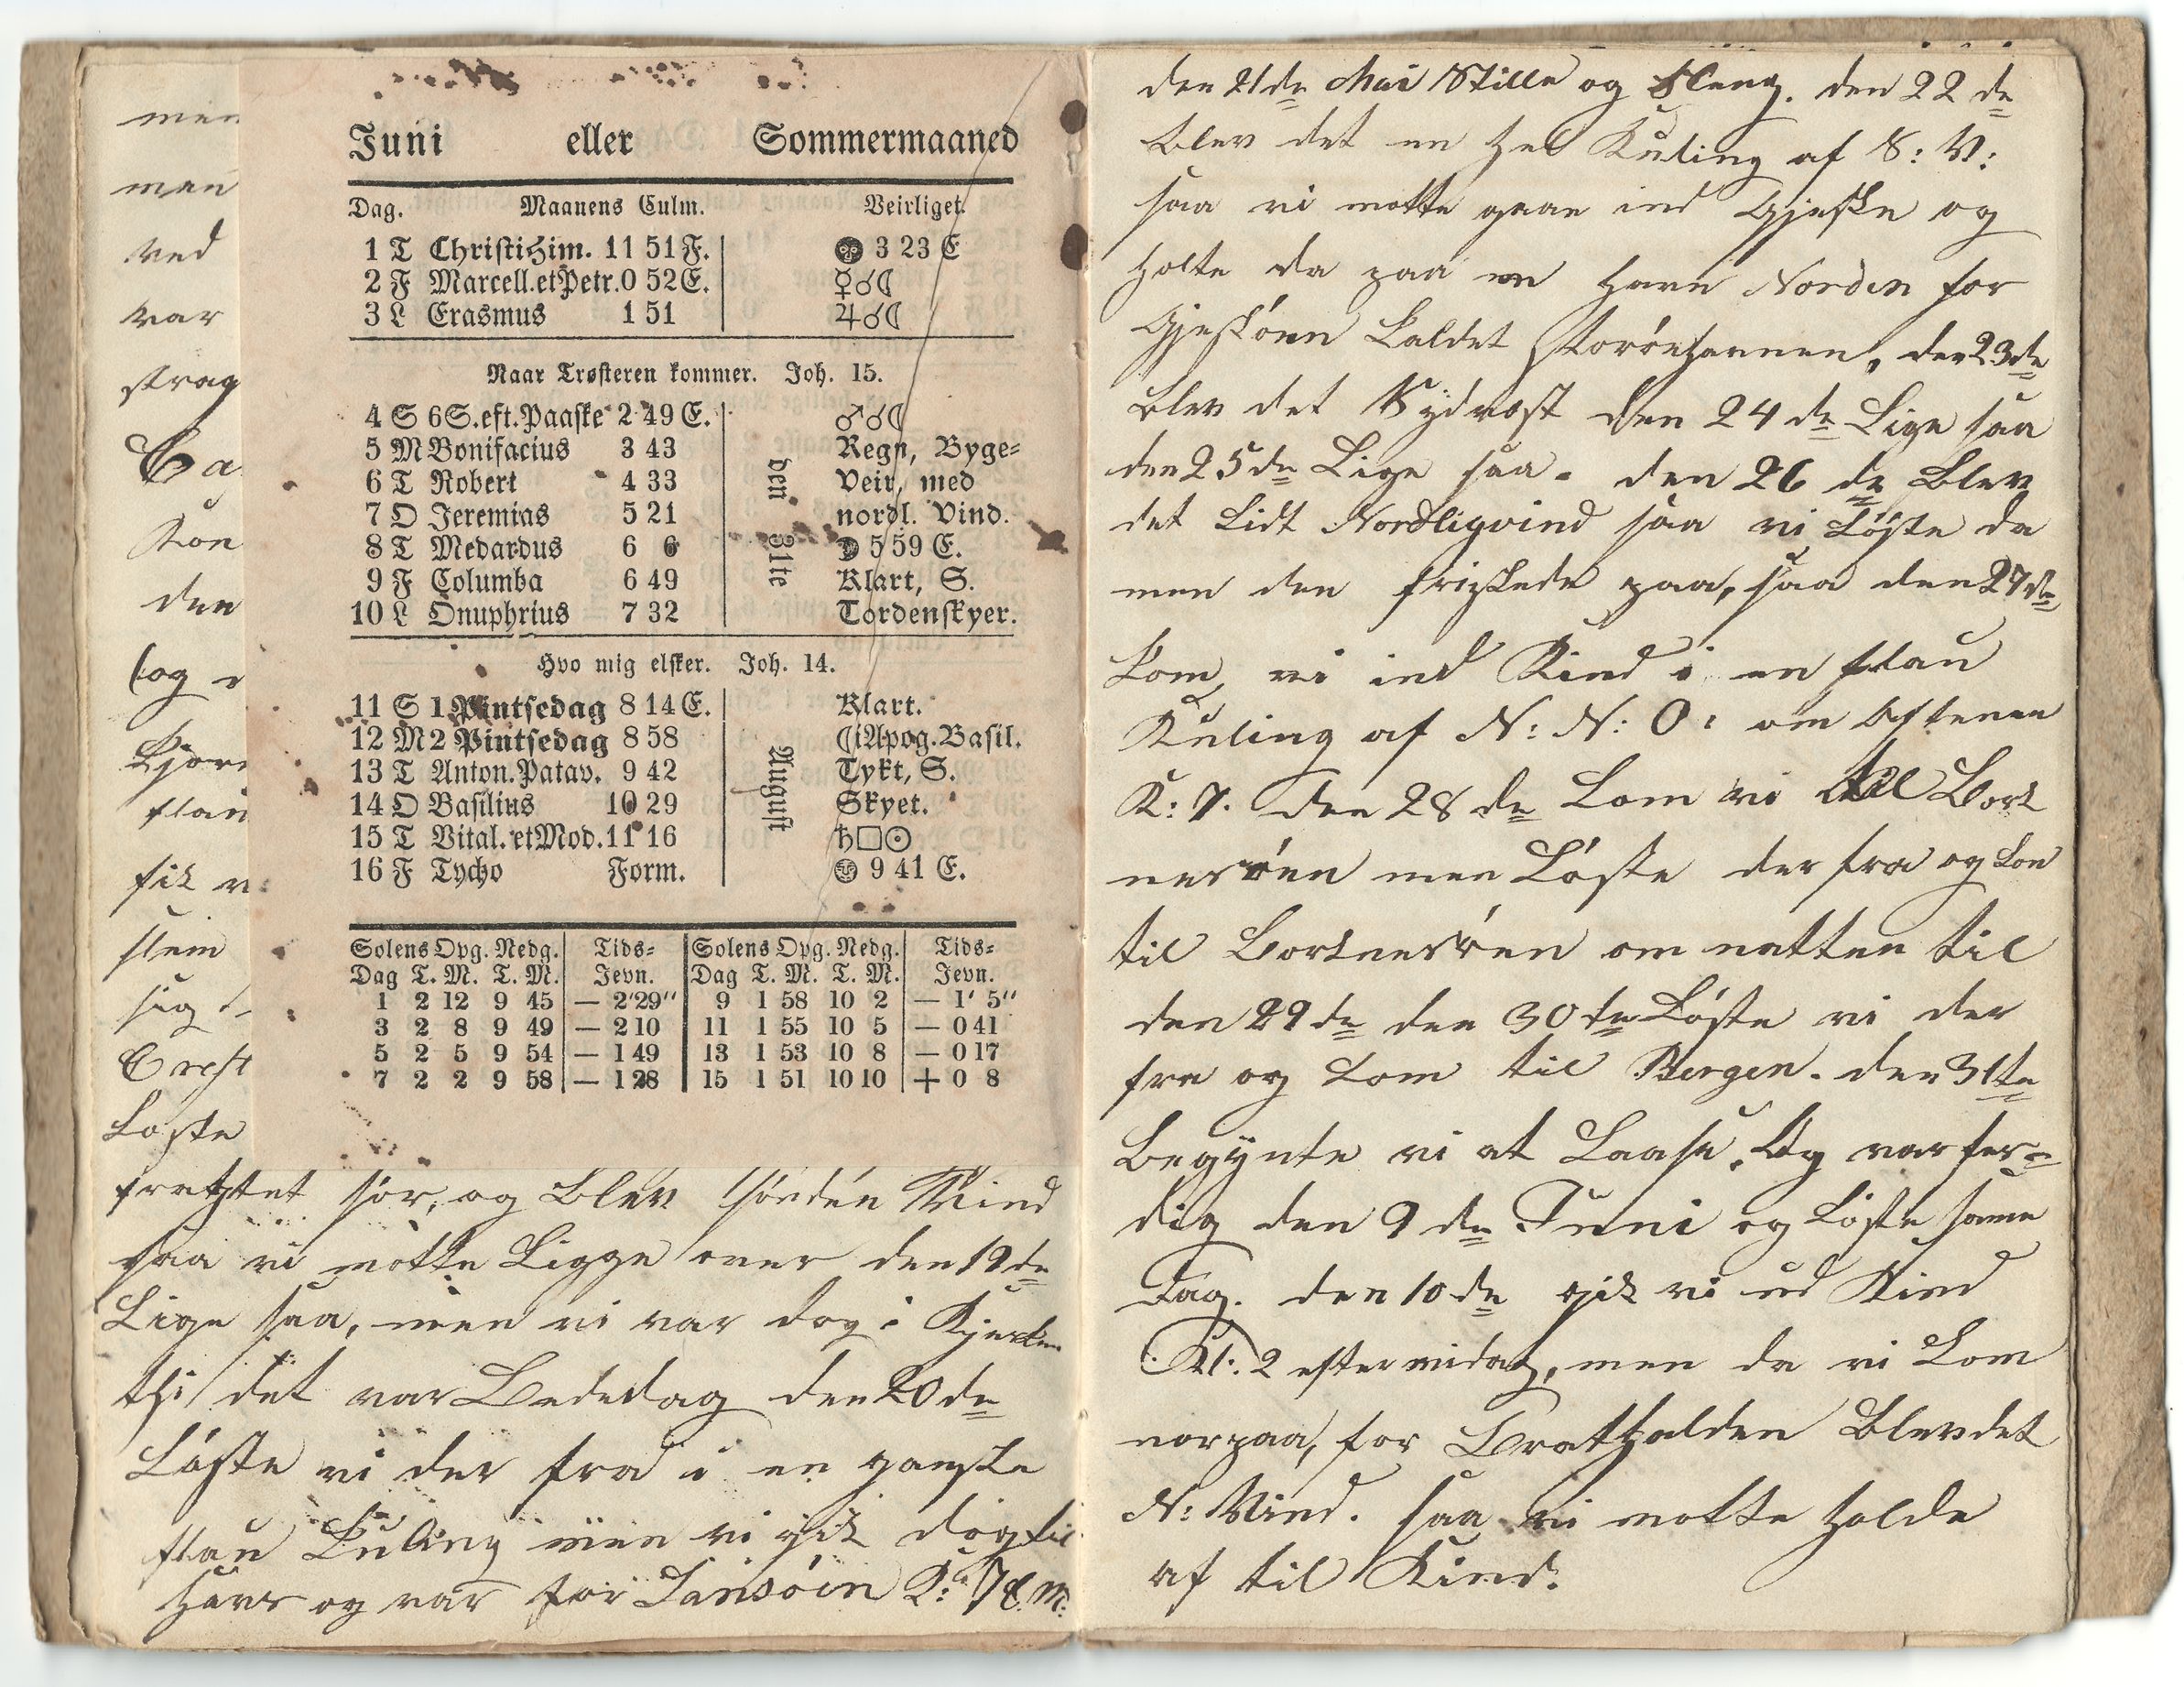 men
men
ved
var
strag
Ca
Kon
den
og
Kjør
flau
fik v
slem
sig
Løste
Juni eller Sommermaaned
Dag. Maanens Culm. Veirliget.
1 T ChristiHim. 11 51 F. 3 23 E
2 F Marcell.etPetr. 0 52 E. ☿☌☾
3 L Erasmus 1 51 ♃☌☾
Naar Trøsteren kommer. Joh. 15.
4 S 6S.eft.Paaske 2 49 E. ♂☌☾
5 M Bonifacius 3 43 Regn, Byge=
6 T Robert 4 33 Veir, med
7 O Jeremias 5 21 nordl. Vind.
8 T Medardus 6 6 5 59 E.
9 F Columba 6 49 Klart, S.
10 L Onuphrius 7 32 Tordenskyer.
den 31te
Hvo mig elsker. Joh. 14.
11 S 1 Pintsedag 8 14 E. Klart.
12 M 2 Pintsedag 8 58 ☾iApog.Basil.
13 T Anton.Patav. 9 42 Tykt, S.
14 O Basilius 10 29 Skyet.
15 T Vital.etMod. 11 16 ♄□☉
16 F Tycho Form. 9 41 E.
August
Solens Opg. Nedg. Tids= Solens Opg. Nedg. Tids=
Dag T. M. T. M. Jevn. Dag T. M. T. M. Jevn.
1 2 12 9 45 — 2'29" 9 1 58 10 2 — 1' 5"
3 2 8 9 49 — 2 10 11 1 55 10 5 — 0 41
5 2 5 9 54 — 1 49 13 1 53 10 8 — 0 17
7 2 2 9 58 — 1 28 15 1 51 10 10 + 0 8
frahtet sør, og Blev sønden Vind
saa vi motte Ligge over den 19de
Lige saa, men vi var dog i Kjerken
thi det var Bededag den 20de
Løste vi der fra i en ganske
flau Kuling men vi gik dog til
Havs og var for Sansøen K: 7 E.M:
den 21de Mai Stille og Sleng. den 22de
Blev det en hel Kuling af S: V:
saa vi motte gaae ind Gjeske og
holte da paa en Havn Norden for
Gjeskøen kaldet Storøehavnen, den 23de
Blev det Sydvost den 24de Lige saa
den 25de Lige saa. den 26de Blev
det Lidt Nordligvind saa vi Løste da
men den friskede paa, saa den 27de
kom vi ind Kind i en flau
Kuling af N: N: O: om Aftenen
K: 7. den 28de kom vi til Bort
nesøen men Løste der fra og kom
til Bortnesøen om natten til
den 29de den 30te Løste vi der
fra og kom til Bergen. den 31te
Begynte vi at Laase, Og var fer=
dig den 9de Juni og Løste same
Dag. den 10de gik vi ud Kind
Kl: 2 eftermidag, men da vi kom
norpaa, for Brathalden Blev det
N: Vind. saa vi motte holde
af til Kind.